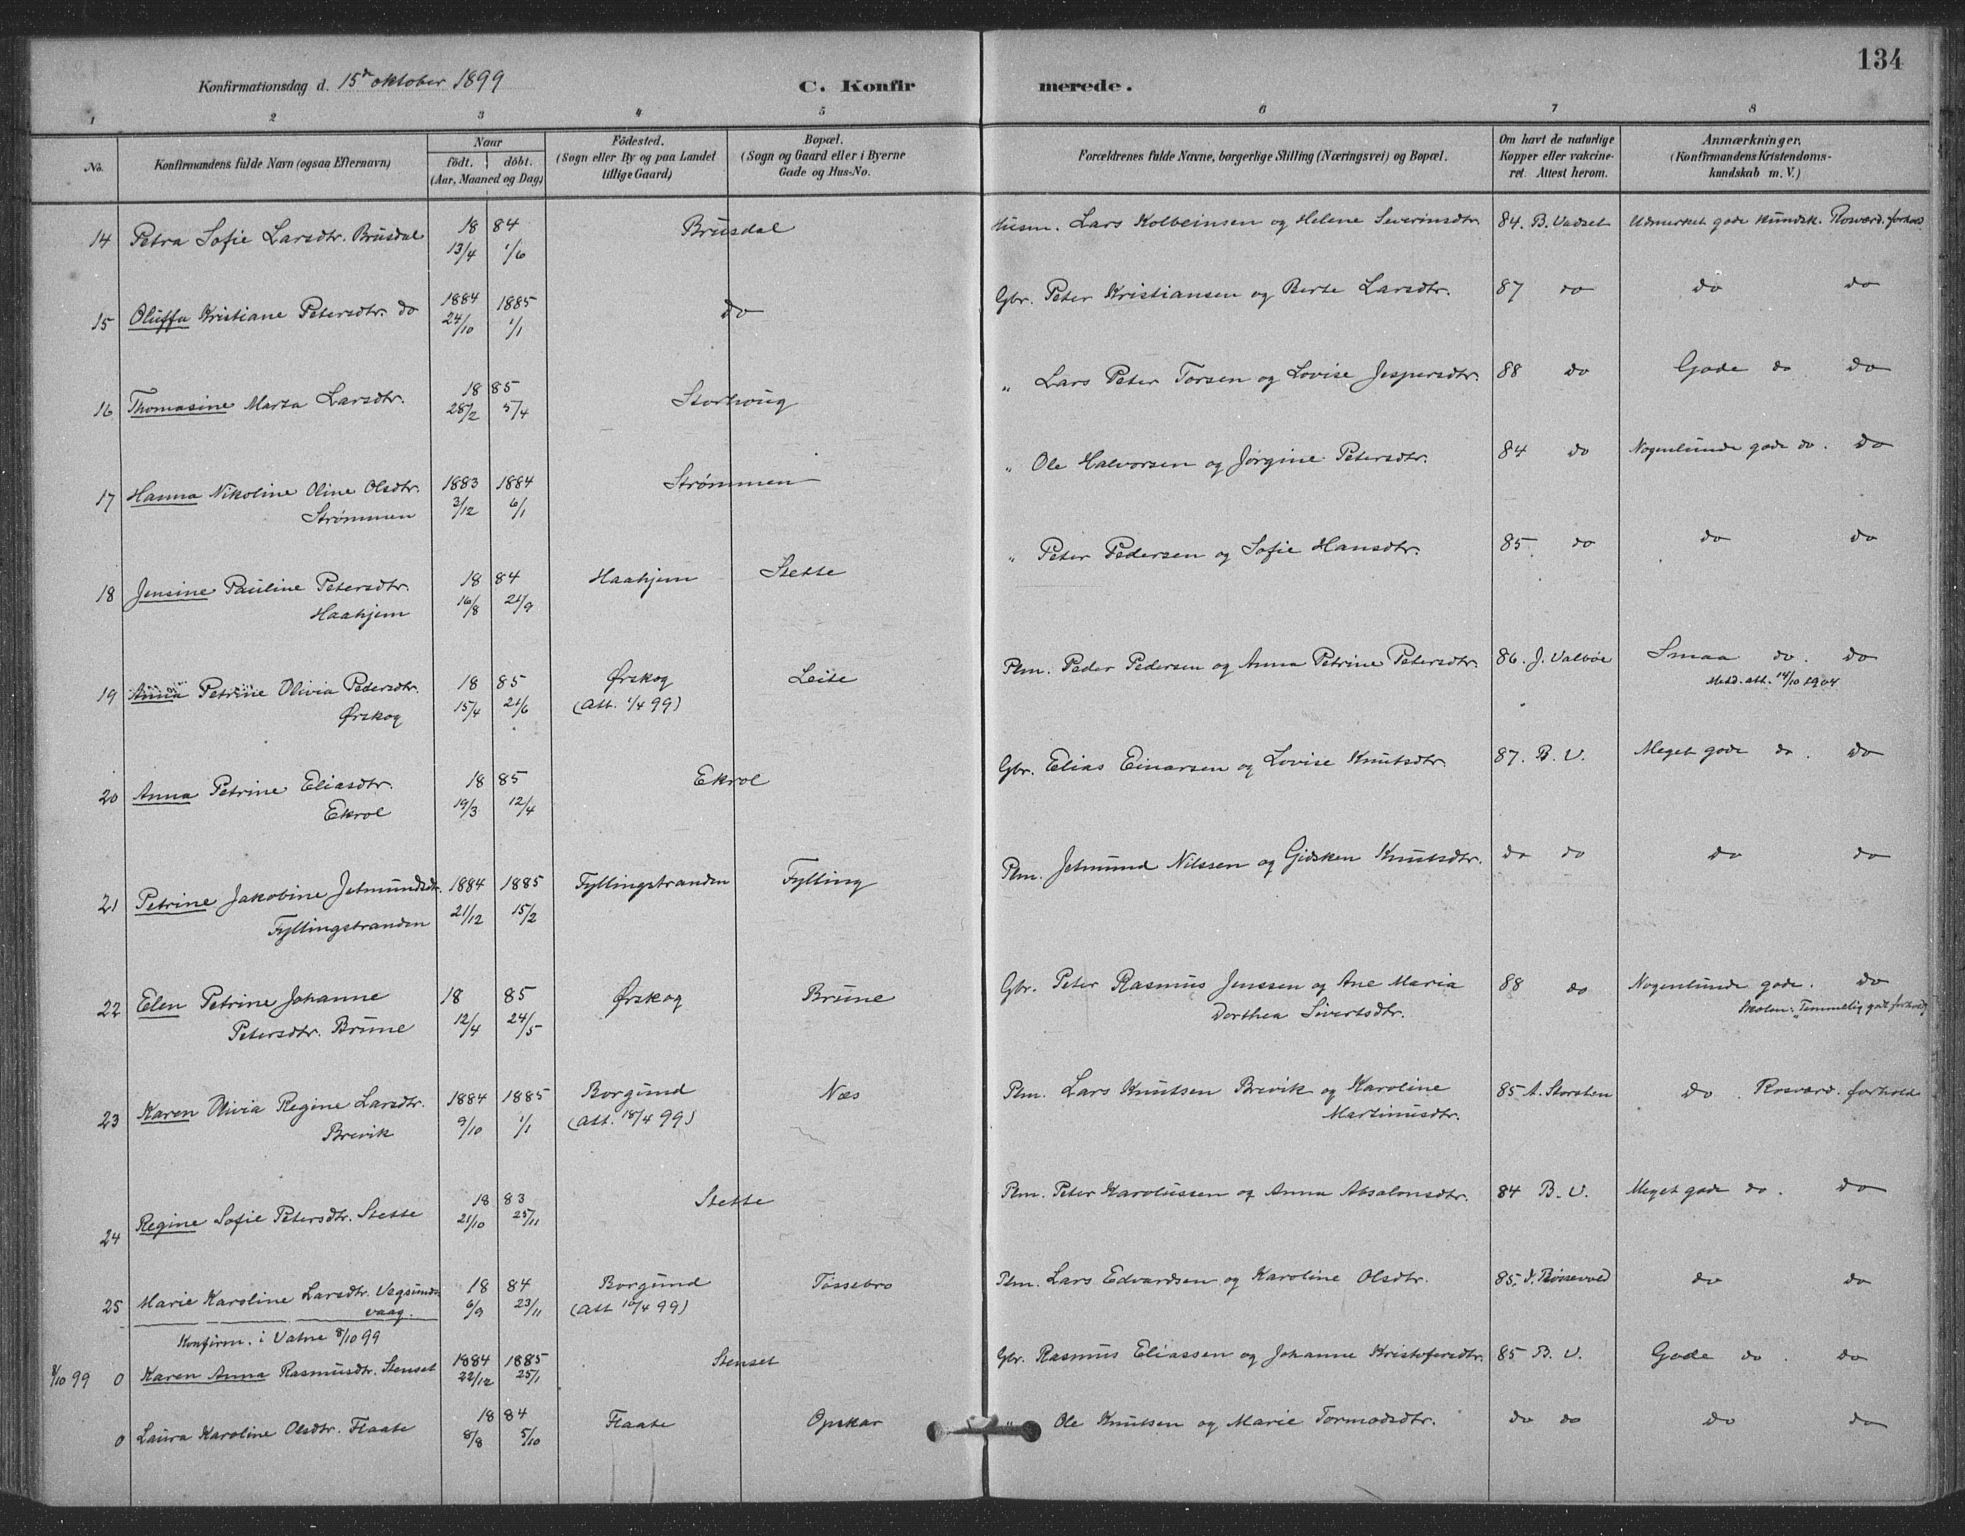 134
Konfirmationsdag d. 15de oktober 1899 C. Konfirmerede.
1 2 3 4 5 6 7 8
No. Konfirmandens fulde Navn (ogsaa Efternavn) Naar födt. döbt. (Aar, Maaned og Dag) Födested. (Sogn eller By og paa Landet tillige Gaard) Bopæl. (Sogn og Gaard eller i Byerne Gade og Hus-No. Forældrenes fulde Navne, borgerlige Stilling (Næringsvei) og Bopæl. Om havt de naturlige Kopper eller vakcineret. Attest herom. Anmærkninger. (Konfirmandens Kristendomskundskab m. V.)
14 Petra Sofie Larsdtr. Brusdal 1884 13/4 1/6 Brusdal Husm. Lars Kolbeinsen og Helene Severinsdtr. 84. B. Vadset Udmerket gode Kundsk. Rosværd. forhold
15 Oluffa Kristiane Petersdtr. do 1884 24/10 1885 1/1 do Gbr. Peter Kristiansen og Berte Larsdtr. 87 do do do
16 Thomasine Marta Larsdtr. 1885 28/2 5/4 Storhoug " Lars Peter Torsen og Lovise Jespersdtr. 88 do Gode do do
17 Hanna Nikoline Oline Olsdtr. 1883 3/12 1884 6/1 Strømmen " Ole Halvorsen og Jørgine Petersdtr. 84 do Nogenlunde gode do. do
Strømmen
18 Jensine Pauline Petersdtr. 1884 16/8 21/9 Haahjem Stette " Peter Pedersen og Sofie Hansdtr. 85. do do do
Haahjem
19 Anna Petrine Olivia Pedersdtr. 1885 15/4 21/6 Ørskog Leite Plm. Peder Pedersen og Anna Petrine Petersdtr. 86. J. Valbøe Smaa do. do
Ørskog (Att. 1/4 99) Medd. att. 14/10 1904
20 Anna Petrine Eliasdtr. 1885 19/3 12/4 Ekrol Gbr. Elias Einarsen og Lovise Knutsdtr. 87. B. V. Meget gode do. do
Ekrol
21 Petrine Jakobine Jetmundsdtr. 1884 21/12 1885 15/2 Fyllingstranden Fylling Plm. Jetmund Nilssen og Gidsken Knutsdtr. do do do do
Fyllingstranden
22 Elen Petrine Johanne 1885 12/4 24/5 Ørskog Brune Gbr. Peter Rasmus Jenssen og Ane Maria 88 do Nogenlunde gode. do
Petersdtr. Brune Dorthea Sivertsdtr. Skolen: "Temmelig godt forhold"
23 Karen Olivia Regine Larsdtr. 1884 9/10 1885 1/1 Borgund Næs Plm. Lars Knutsen Brevik og Karoline 85 A. Storsten do. Rosværd. forhold
Brevik (Att. 18/4 99) Martinusdtr.
24 Regine Sofie Petersdtr. Stette 1883 21/10 25/11 Stette Plm. Peter Karolussen og Anna Absalonsdtr. 84 B. V. Meget gode do. do
25 Marie Karoline Larsdtr. Vegsundsvaag. 1884 6/9 23/11 Borgund Tøssebro Plm. Lars Edvardsen og Karoline Olsdtr. 85. do do
(Att 10/4 99)
Konfirm. i Vatne 8/10 99
8/10 99 0 Karen Anna Rasmusdtr. Stenset 1884 22/12 1885 25/1 Stenset Gbr. Rasmus Eliassen og Johanne Kristofersdtr. 85 B. V. Gode do. do
0 Laura Karoline Olsdtr. Flaate 1884 8/8 5/10 Flaate Opskar " Ole Knutsen og Marie Tormodsdtr. do do do do